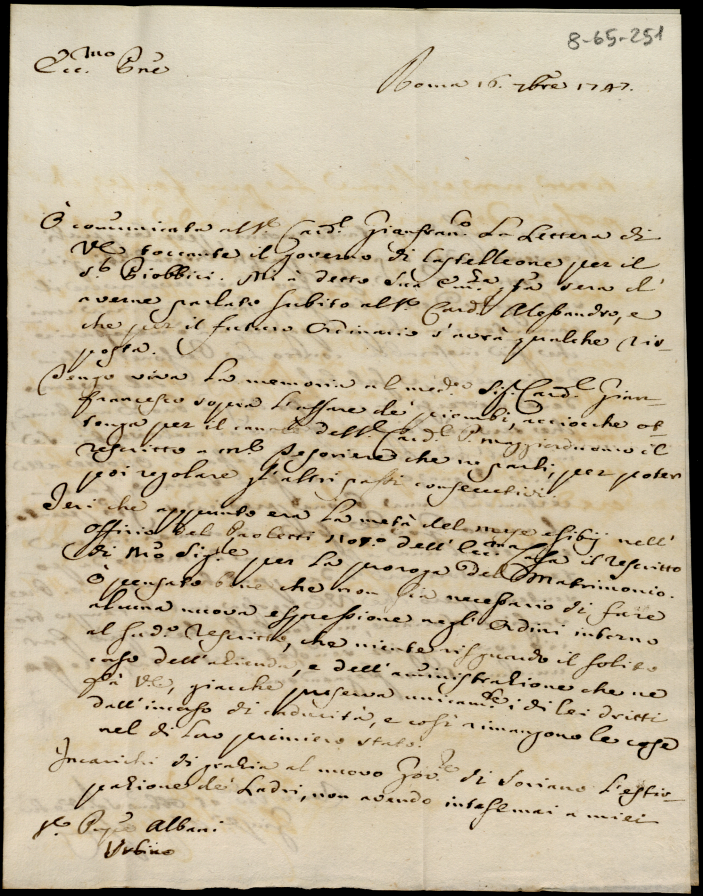 8-65-251
Ecc.mo Pne
Roma 16. 7bre 1747.
Ò comunicata all' Card. Gianfran.co La Lettera di
V.E. toccante il Governo di Castelleone per il
Piobbici. Mi à detto Sua Em.za, sera d'
averne parlato subito al Card. Alessandro, e
che per il futuro Ordinario s'avrà qualche ris-
posta.
Tengo viva La memoria al med.o Sig. Card. Gian-
francesco sopra l'affare de' piombi, acciocche ot-
tenga per il canale dell' Card. Maggiorduomo il
rescritto a Tesoriere che ne parli, per poter
poi regolare gl'altri passi consecutivi.
Jeri che appunto era La metà del mese esibij nell'
offizio del Paoletti Not.o dell' il rescritto
di Nro Sig.re per La proroga del Matrimonio.
Ò pensato bene che non sia necessario di fare
alcuna nuova espressione negli Ordini intorno
al sud.o rescritto, che niente riguarda il solito
corso dell'azienda, e dell'amministrazione che ne
fà V.E., giacche preserva unicam.te i di lei dritti
dall'incorso di caducità, e così rimangono le cose
nel di loro primiero stato.
Incarichi di grazia al nuovo Gov.re di Soriano L'estir-
pazione de' Ladri, non avendo intesi mai a miei
Albani
Urbino